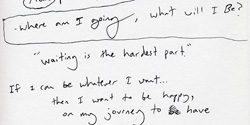 -where am I going, what will I Be?
"waiting is the hardest part."
If I can be whatever I want...
then I want to be happy,
on my journey to have